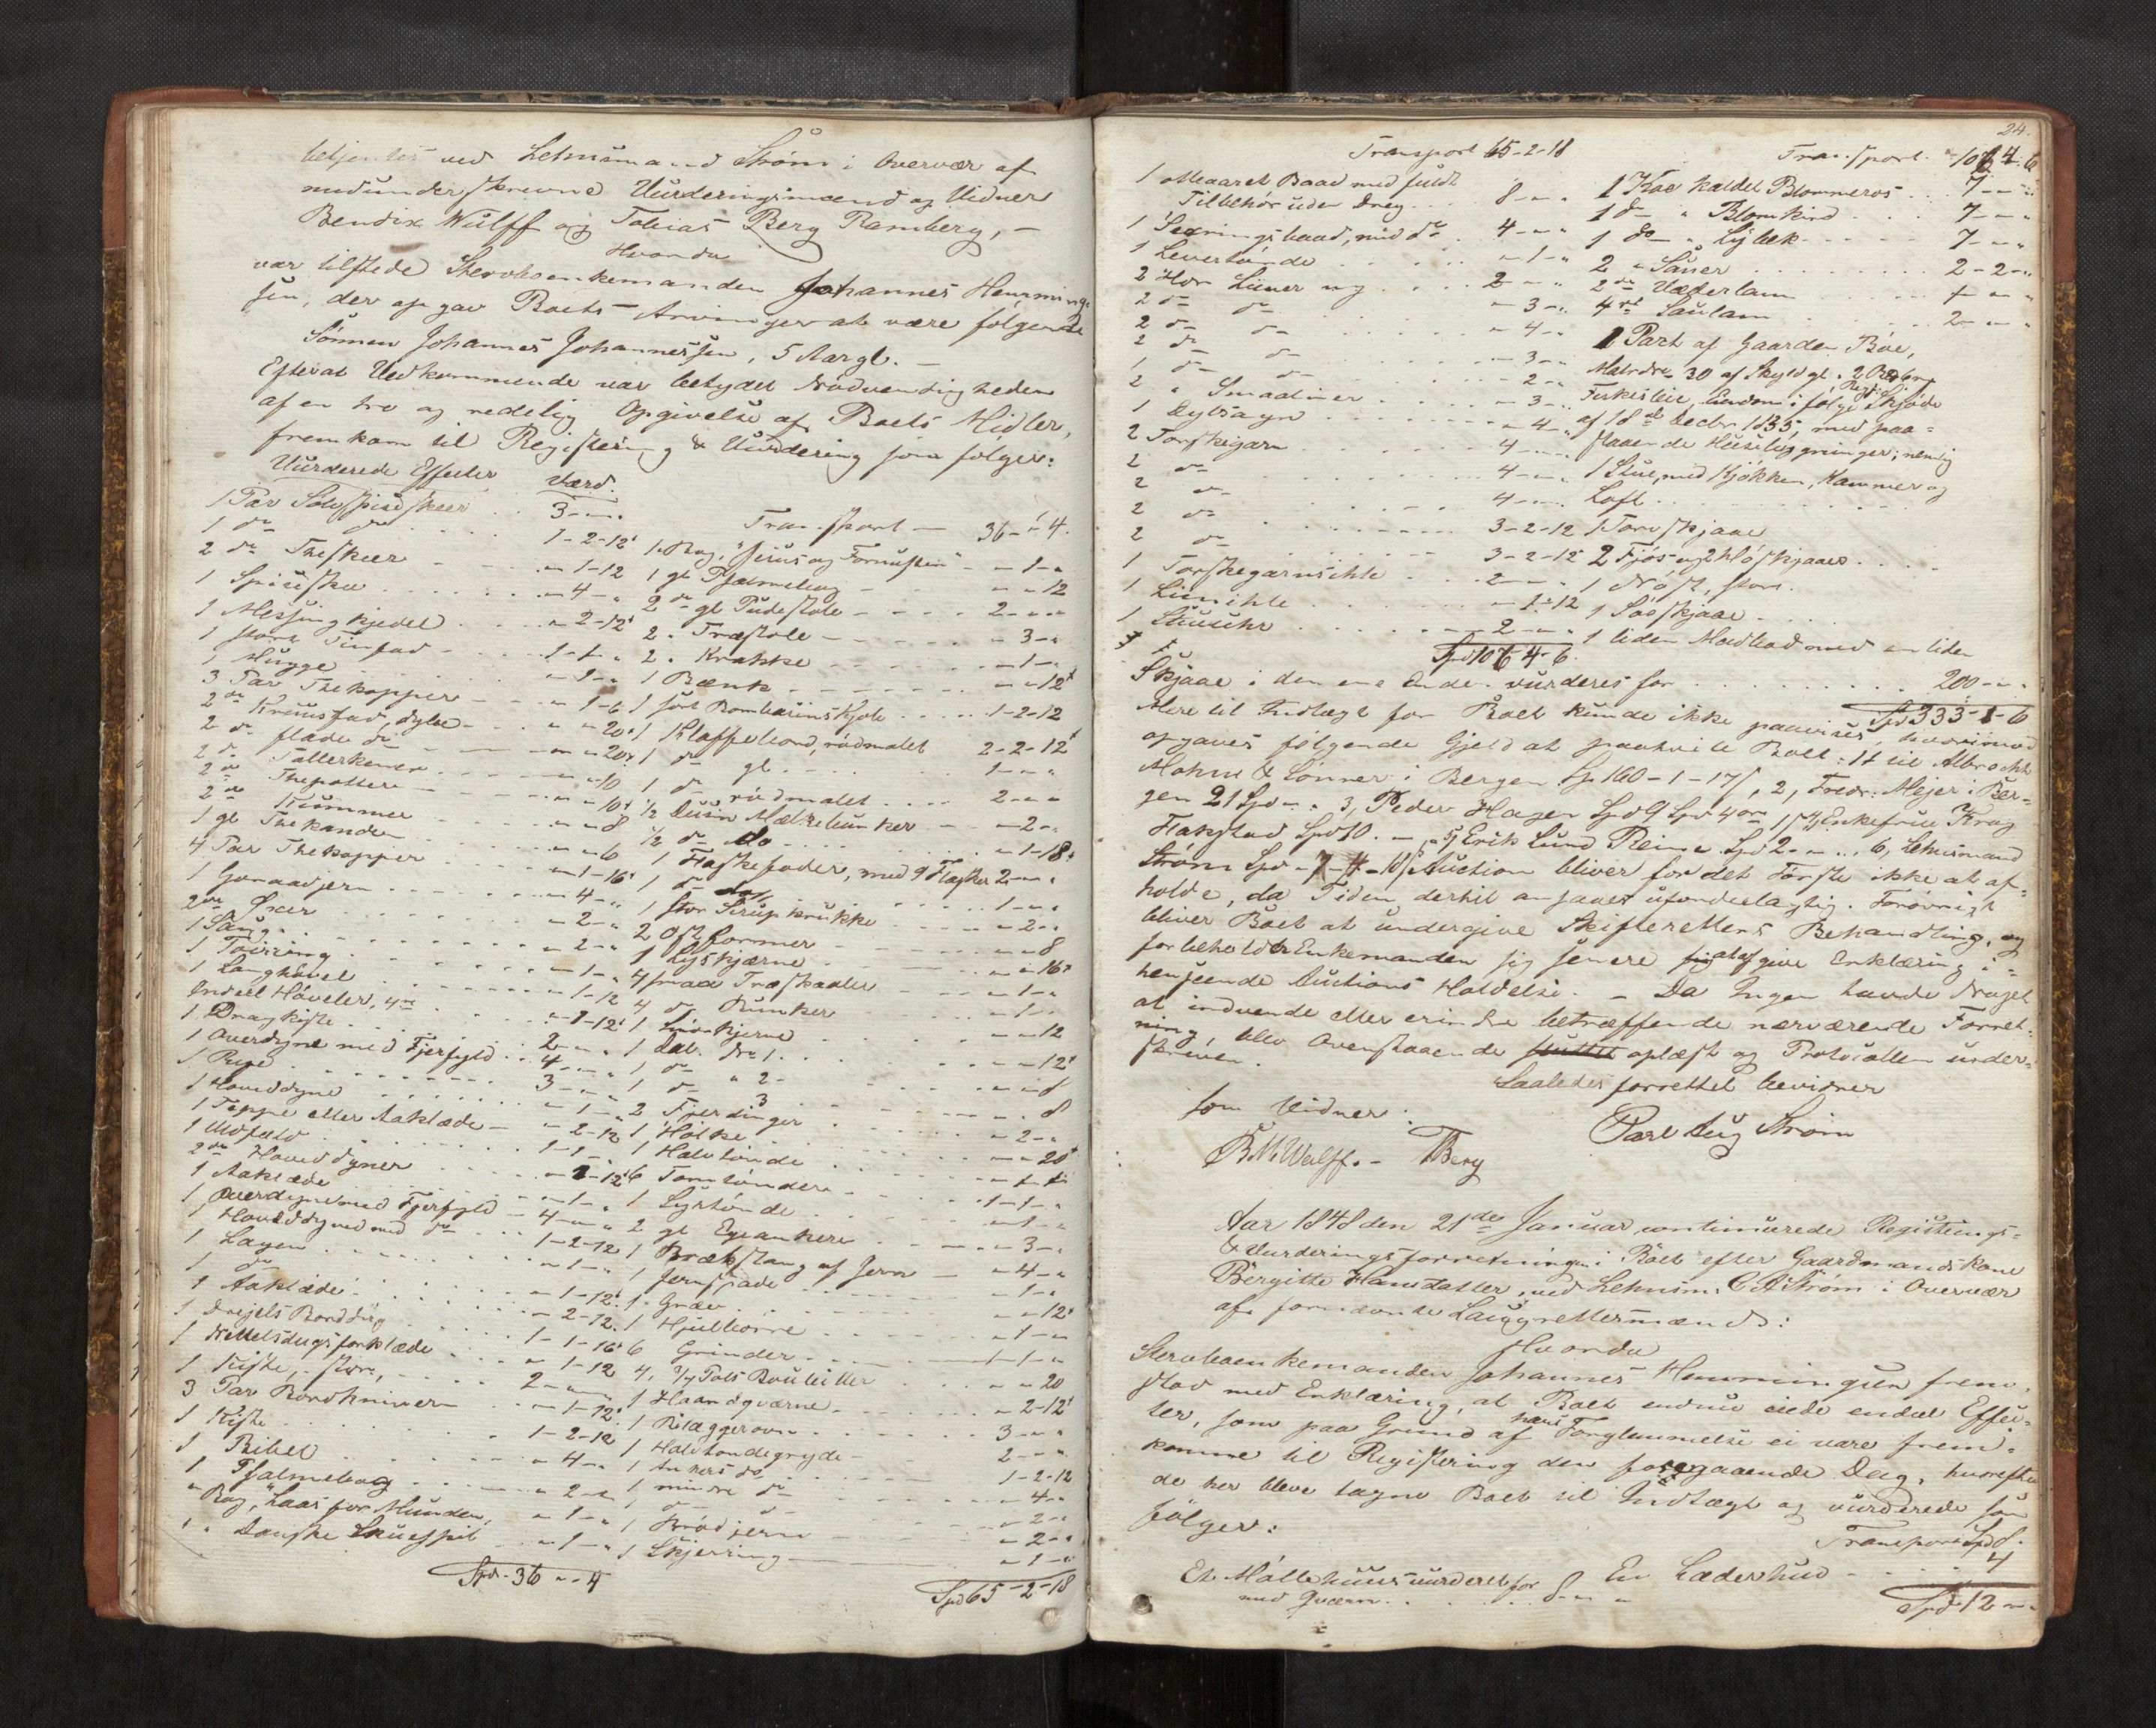 betjentes ved Lehnsmand Strøm i Overvær af
nedunderskrevne Vurderingsmænd og Vidner
Bendix Wulff og Tobias Berg Ramberg, –
Hvorda
var tilstede Stervboenkemanden Johannes Henning-
sen, der opgav Boets Arvinger at være følgende
Sønnen Johannes Johannessen, 5 Aar gl. –
Efterat Vedkommende var betydet Nødvendigheden
af en tro og redelig Opgivelse af Boets Midler,
fremkom til Registering & Vurdering som følger:
Vurderede Effecter Værd.
1 Par Sølvspiseskeer . . 3-"-"
1 do do . . . 1-2-12
2 do Theskeer "-1-12
1 Spiseske "-4-"
1 Messingkjedel "-2-12
1 stort Tinfad 1-1-"
1 Mugge "-1-"
3 Par Thekopper "-1-6
2 do Kruusfad, dybe "-"-20
2 do flade do "-"-20
2 do Tallerkener "-"-10
2 do Thepotter "-"-10
2 do Kummer "-"-8
1 gl Thekande "-"-6
4 Par Thekopper "-1-16
1 Goraadjern "-4-"
2 do Øxer "-2-"
1 Saug "-2-"
1 "-1-"
1 Langhøvel "-1-12
Endeel Høveler, 4re "-1-12
1 Dragkiste 2-"-"
1 Overdyne med Fjerfyld 4-"-"
1 Rye 3-"-"
1 Hoveddyne "-1-"
1 Teppe eller Aaklæde "-2-12
1 Uldfeld 1-1-"
2 do Hoveddyner "-1-12
1 Aaklæde "-1-"
1 Overdyne med Fjerfyld 4-"-"
1 Hoveddyne med do 1-2-12
1 Lagen "-1-"
1 do "-1-12
1 Aaklæde "-2-12
1 Drejels Borddug 1-1-16
1 Nettelsdugs forklæde "-1-12
1 Kiste, stor, 2-"-"
3 Par Bordkniver "-1-12
1 Kiste 1-2-12
1 Bibel "-4-"
1 Psalmebog "-2-"
" Bog, "Laas for Munden, "-1-"
" " Danske Skuespil "-1-"
Spd. 36-"-4
Transport – 36-"-4.
1 Bog, "Jesus og Fornuften" "-1-"
1 gl Psalmebog "-"-12
2 do gl Pudestole 2-"-"
2 " Træstole "-3-"
2 " Krakke "-1-"
1 Bænk "-"-12
1 sort Bombasins Kjole 1-2-12
1 Klappebord, rødmalet 2-2-12
1 do gl. 1-"-"
1 do rødmalet 2-"-"
1/2 Dusin Mælkebunker "-2-"
1/2 do do "-1-18
1 Flaskefoder, med 9 Flasker 2-"-"
1 do do 1-"-"
1 stor Sirupkrukke "-2-"
2 Ostformer "-"-8
1 Lyskjærne "-"-16
4 smaa Træskaaler "-1-"
4 do Bunker "-1-"
1 Smørkjerne "-"-12
1 Dal. No 1. "-"-12
1 do " 2 "-"-8
1 do 3 "-"-8
2 Fjerdinger "-2-"
1 Holke "-"-20
1 Halvtønde "-1-"
6 Tomtønder 1-1-"
1 Lystønde "-1-"
2 gl Egeankere "-3-"
1 Brækstang af Jern "-4-"
1 Jernspade "-1-"
1 Grev "-"-12
1 Hjulbørre "-1-"
6 Grinder 1-1-"
4, 3/4 Pots Bouteiller "-"-20
1 Haandqværne "-2-12
1 Bilæggerovn 3-"-"
1 Halvtøndegryde 2-"-"
1 Ankers do 1-2-12
1 mindre do "-4-"
1 do "-2-"
1 Brødjern "-2-"
1 Skjerring "-1-"
Spd 65-2-18
24.
Transport 65-2-18
1 Aaret Baad med fuldt
Tilbehør uden Dreg 8-"-"
1 Sexringsbaad, med do 4-"-"
1 Levertønde "-1-"
2 Hdr Liner ny 2-"-"
2 do do "-3-"
2 do do "-4-"
2 do do "-3-"
1 do do "-2-"
2 " Smaaliner "-3-"
1 Dybsagn "-4-"
2 Torskegarn 4-"-"
2 do 4-"-"
2 do 4-"-"
2 do 3-2-12
2 do 3-2-12
1 Torskegarnsihle 2-"-"
1 Liinihle "-1-12
1 "-2-"
Spd 106-4-6.
Transport. 106-4-6
1 Koe kaldet Blommeros 7-"-"
1 do " Blomkind 7-"-"
1 do " Lybek 7-"-"
2 " Sauer 2-2-"
2 do Væderlam 1-"-"
4 re Saulam 2-"-"
1 Part af Gaarden Bøe,
Matr. No 30 af Skyld gl. 2
Fiskesleie, Eiendom i følge Skjøde
af 18de Decbr 1835, med paa-
staaende Huusebygninger; nemlig
1 Stue, med Kjøkken, Kammer og
Loft
1 Torvskjaae
2 Fjøs og 2 Høskjaaer
1 Nøst, stort.
1 Søeskjaae
1 liden Madbod med en liden
Skjaae i den ene Ende vurderes for 200-"-"
Spd 333-1-6
Mere til Indtægt for Boet kunde ikke paavises, hvorimod
opgaves følgende Gjeld at paahvile Boet: 1, til Albrecht
Mohns & Sønner i Bergen Sp 160-1-17, 2, Fredr. Mejer i Ber-
gen 21 Spd. 3, Peder Hagen Spd 9 4, Enkefrue Krag
Flakstad Spd 10. – 5, Erik Lund Reine Spd 2-"-". 6, Lehnsmand
Strøm Spd "-7-"-10. Auction bliver for det Første ikke at af-
holde, da Tiden dertil ansaaes ufordeelagtig. Forøvrigt
bliver Boet at undergive Skifterettens Behandling, og
forbeholdt Enkemanden sig senere at afgive Erklæring i
henseende Auctions Holdelse. – Da Ingen havde Noget
at indvende eller erindre betræffende nærværende Forret-
ning, blev Ovenstaaende sluttet oplæst og Protocollen under-
skreven.
Saaledes forrettet bevidner
Carl Aug Strøm
som Vidner:
B.M. Wulff. – TBerg
Aar 1848 den 21de Januar continuerede Registerings-
& Vurderingsforretningen i Boet efter Gaardmandskone
Bergitte Hansdatter, ved Lehnsm: C A Strøm i Overvær
af fornævnte Laugrettesmænd:
Hvorda
Stervboenkemanden Johannes Henningsen frem-
stod med Erklæring, at Boet endnu eiede endeel Effec-
ter, som paa Grund af hans Forglemmelse ei vare frem-
komne til Registering den foregaaende Dag, hvorefter
de her bleve tagne Boet til Indtægt og vurderede som
følger:
Et Møllehuus vurderet for
med Qværn 8-"-"
Transport Spd 8.
En Læderhud 4
Spd 12-"-"